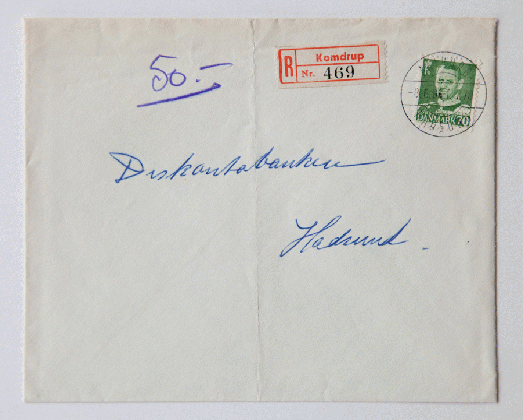 50.-
R Komdrup
Nr. 469
DANMARK 70
Diskontobanken
Hadsund.